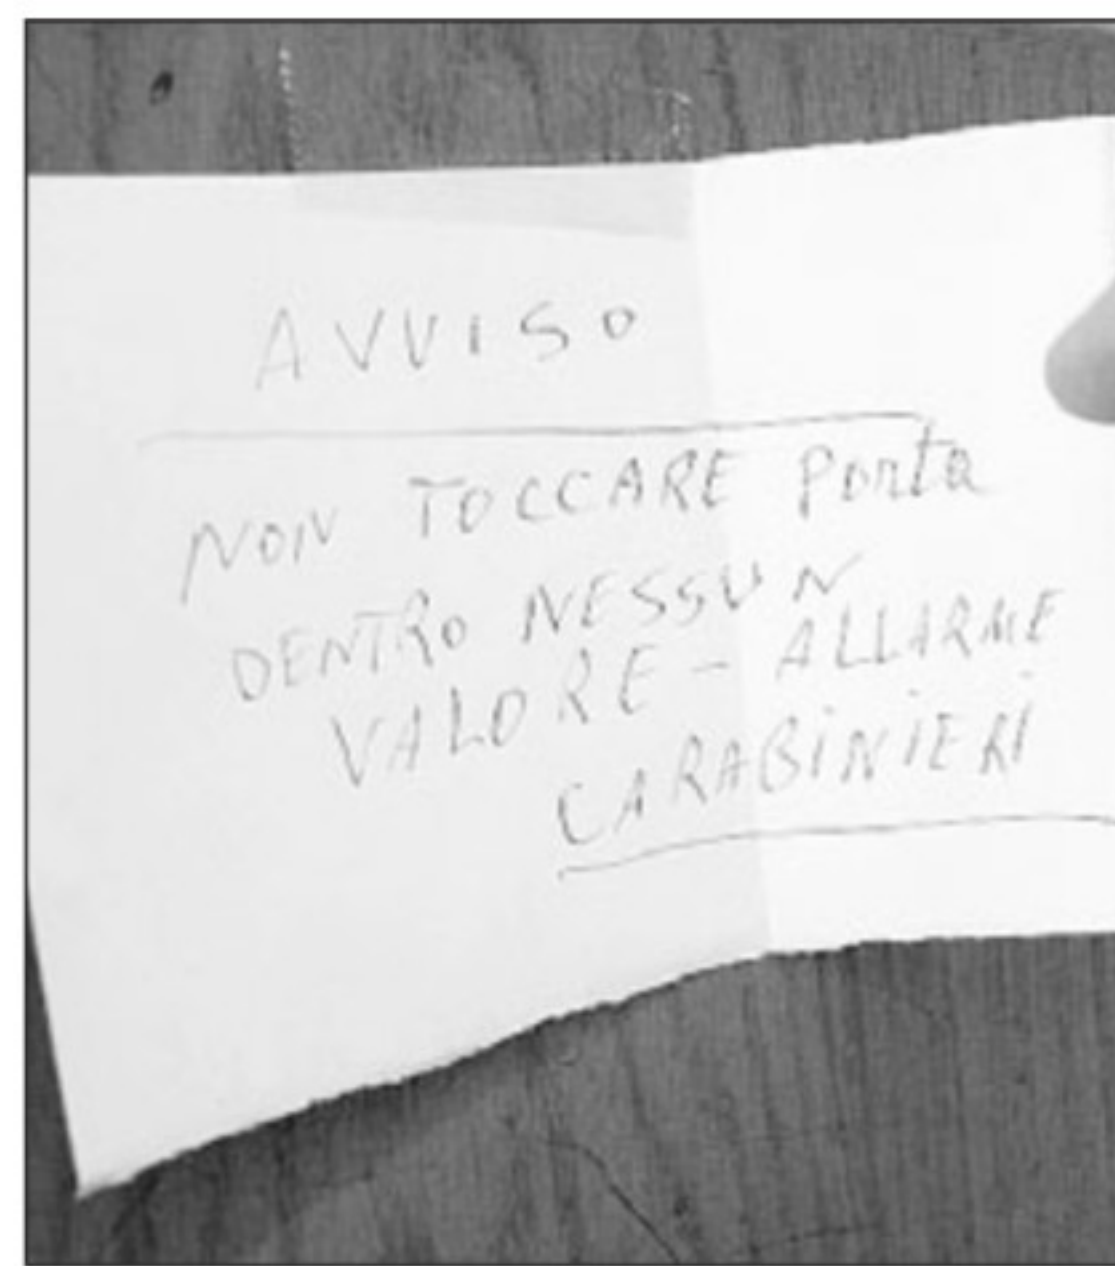 AVVISO
NON TOCCARE Porta
DENTRO NESSUN
VALORE - ALLARME
CARABINIERI